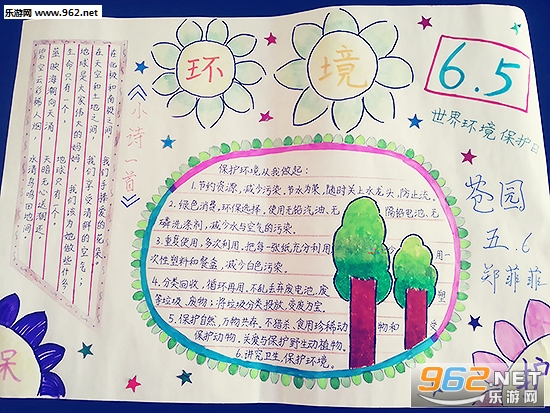 乐游网 www.962.net
环 境
6.5
世界环境保护日
苍园
五.6
郑菲菲
《小诗一首》
在北极和南极之间，
我们手捧爱的花朵。
在天空和土地之间，
我们享受清鲜的空气；
地球是大家伟大的妈妈，
我们该为她做些什么？
生命只有一个，
地球只有一个。
保护环境从我做起：
1.节约资源，减少污染，节水为荣，随时关上水龙头，防止流。
2.绿色消费，环保选择，使用无铅汽油、无 隔铅电池、无
磷洗涤剂，减少水与空气的污染。
3.重复使用，多次利用，把每一张纸充分利用 用一
次性塑料和餐盒，减少白色污染。
4.分类回收，循环再用，不乱丢弃废电池，废 塑
等垃圾、废物；将垃圾分类投放，变废为宝。
5.保护自然，万物共存，不猎杀、食用珍稀动 物和 受
保护动物，关爱与保护野生动植物。
6.讲究卫生，保护环境。
保 护
962.NET
乐游网